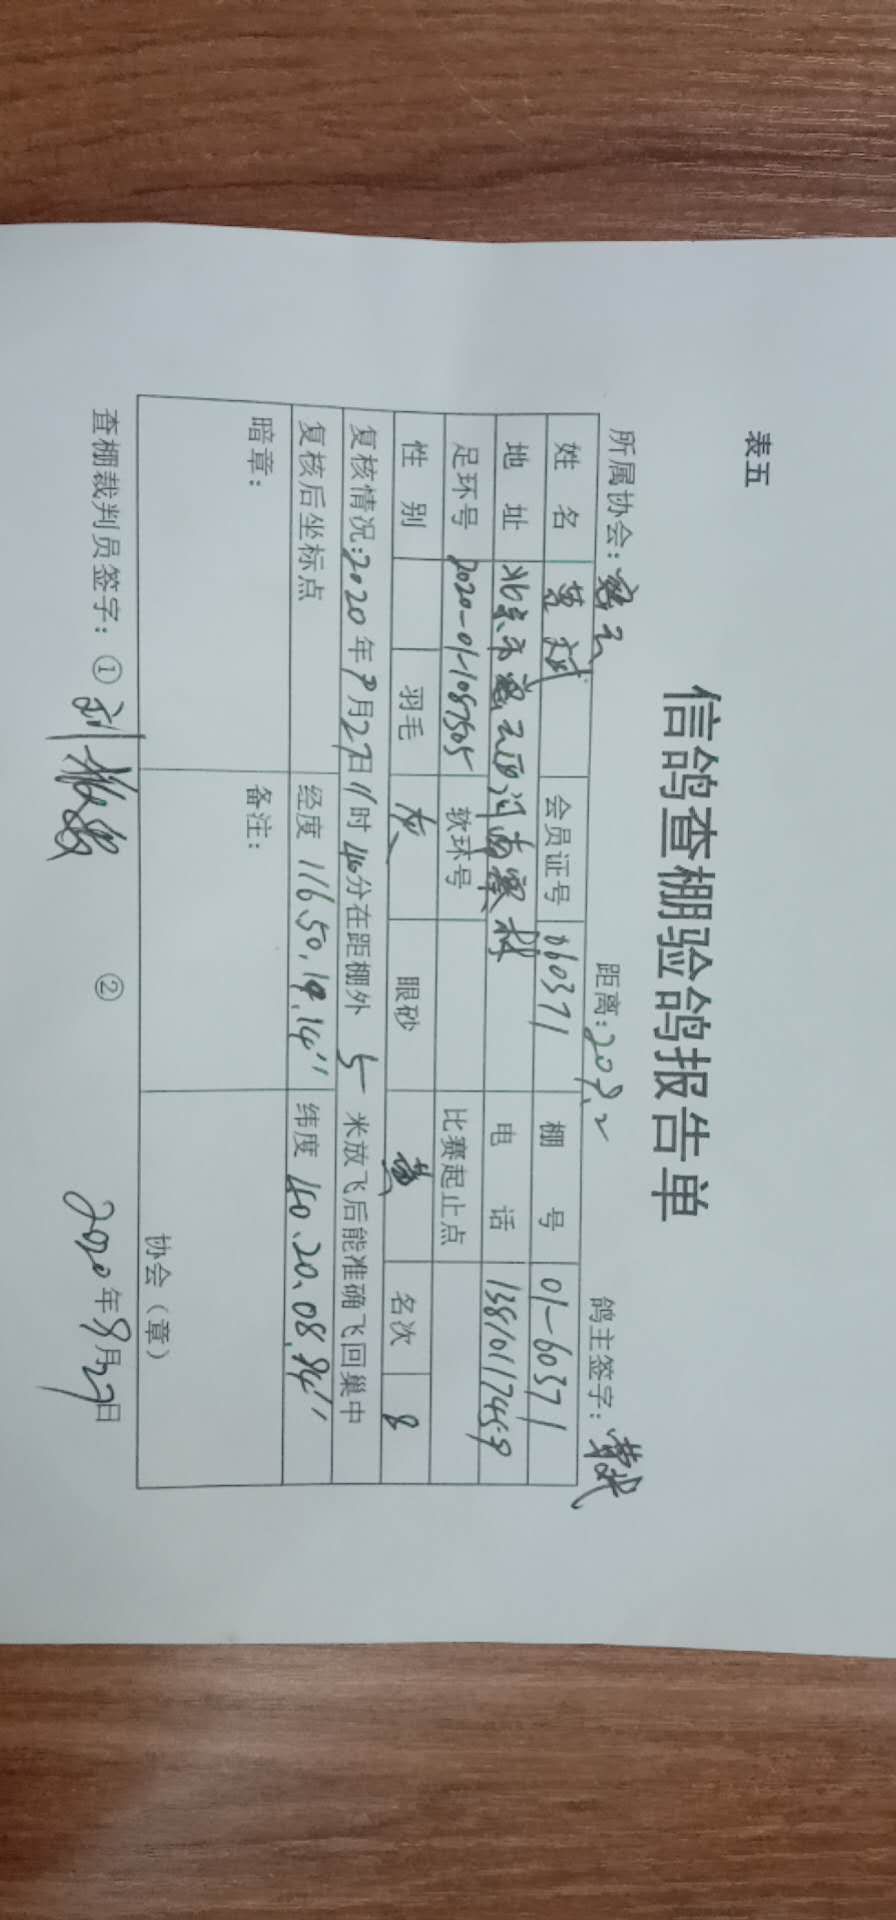 表五
信鸽查棚验鸽报告单
所属协会：密云 距离： 鸽主签字：
姓 名 黄斌 会员证号 060371 棚 号 01-60371
地 址 北京市密云西河南寨村 电 话 13810117459
足环号 2020-01-1087505 软环号 比赛起止点
性 别 羽毛 灰 眼砂 黄 名次 8
复核情况：2020年9月27日11时40分在距棚外 5 米放飞后能准确飞回巢中
复核后坐标点 经度 116.50.19.14" 纬度 40.20.08.94"
暗章： 备注： 协会（章）
查棚裁判员签字：① 刘 ② 2020年9月27日